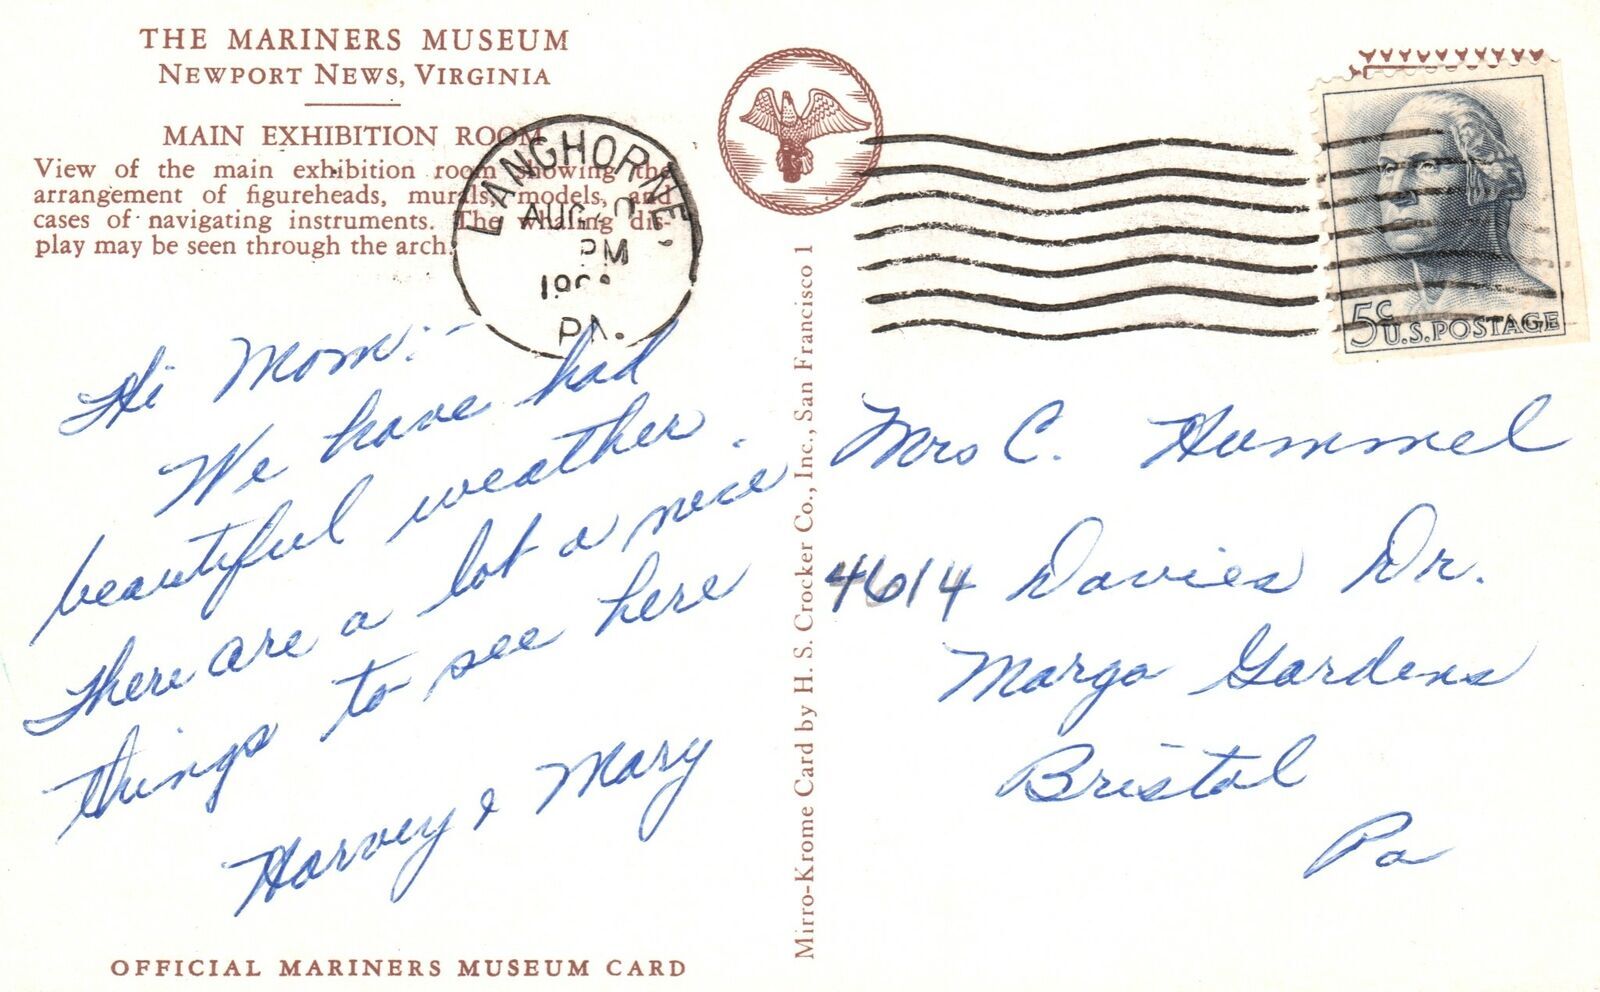 THE MARINERS MUSEUM
NEWPORT NEWS, VIRGINIA
MAIN EXHIBITION ROOM
View of the main exhibition room showing the
arrangement of figureheads, murals, models, and
cases of navigating instruments. The whaling dis-
play may be seen through the arch.
LANGHORNE,
AUG
PM
PA.
5c U.S. POSTAGE
Hi Mom:-
We have had
beautiful weather.
There are a lot a nice
things to see here
Harvey & Mary
Mirro-Krome Card by H. S. Crocker Co., Inc., San Francisco 1
Mrs C. Hummel
4614 Davies Dr.
Margo Gardens
Bristol
Pa
OFFICIAL MARINERS MUSEUM CARD